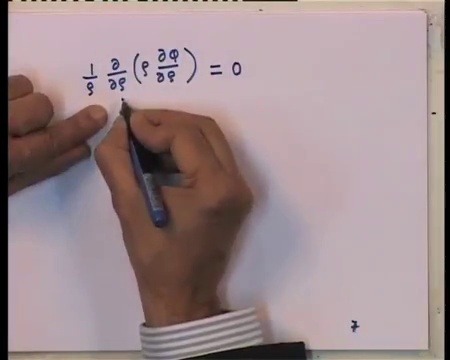 1/ρ ∂/∂ρ (ρ ∂Φ/∂ρ) = 0
7